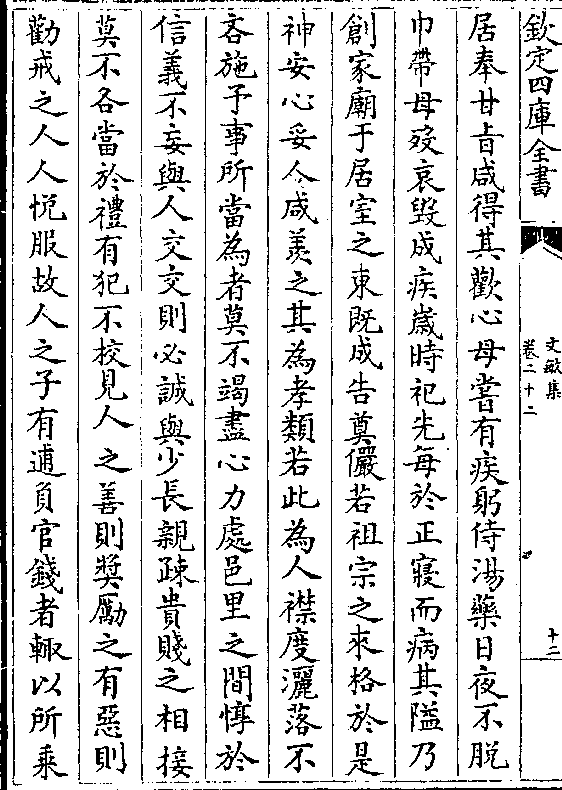 欽定四庫全書
文敏集
卷二十二
十二
居奉甘旨咸得其歡心母嘗有疾躬侍湯藥日夜不脱
巾帶母歿哀毀成疾歳時祀先每於正寢而病其隘乃
創家廟于居室之東既成告奠儼若祖宗之來格於是
神安心妥人咸羨之其為孝類若此為人襟度灑落不
吝施予事所當為者莫不竭盡心力處邑里之間惇於
信義不妄與人交交則必誠與少長親疎貴賤之相接
莫不各當於禮有犯不校見人之善則奬勵之有惡則
勸戒之人人悦服故人之子有逋負官錢者輙以所乘